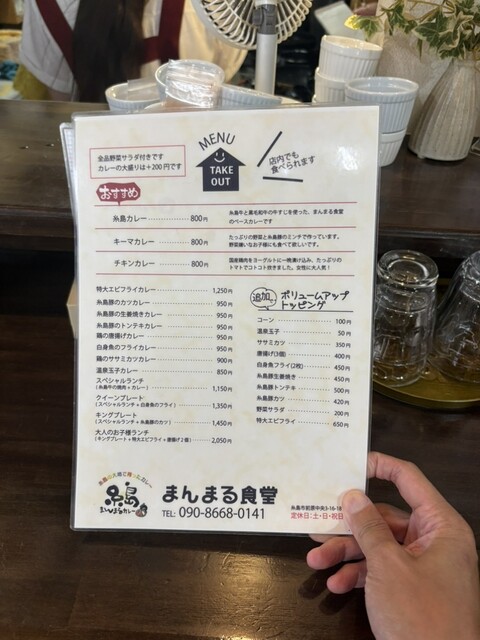 MENU
TAKE
OUT
全品野菜サラダ付きです
カレーの大盛りは+200円です
店内でも
食べられます
おすすめ
糸島カレー 800円
糸島牛と黒毛和牛の牛すじを使った、まんまる食堂
のベースカレーです
キーマカレー 800円
たっぷりの野菜と糸島豚のミンチで作っています。
野菜嫌いなお子様にも食べて欲しいです。
チキンカレー 800円
国産鶏肉をヨーグルトに一晩漬け込み、たっぷりの
トマトでコトコト炊きました。女性に大人気!
特大エビフライカレー 1,250円
糸島豚のカツカレー 950円
糸島豚の生姜焼きカレー 950円
糸島豚のトンテキカレー 950円
鶏の唐揚げカレー 950円
白身魚のフライカレー 950円
鶏のササミカツカレー 900円
温泉玉子カレー 850円
スペシャルランチ
(糸島牛の焼肉+カレー) 1,150円
クイーンプレート
(スペシャルランチ+白身魚のフライ) 1,350円
キングプレート
(スペシャルランチ+糸島豚のカツ) 1,450円
大人のお子様ランチ
(キングプレート+特大エビフライ+唐揚げ2個) 2,050円
追加 ボリュームアップ
トッピング
コーン 100円
温泉玉子 50円
ササミカツ 350円
唐揚げ(3個) 400円
白身フライ(2枚) 450円
糸島豚生姜焼き 450円
糸島豚トンテキ 500円
糸島豚カツ 420円
野菜サラダ 200円
特大エビフライ 650円
糸島の大地で育ったカレー
糸島
まんまるカレー
まんまる食堂
TEL: 090-8668-0141
糸島市前原中央3-16-18
定休日:土・日・祝日